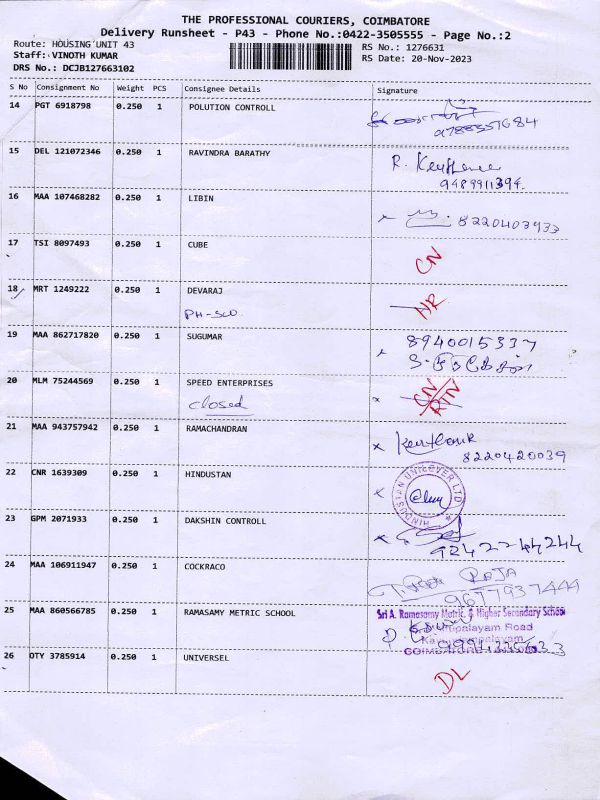 THE PROFESSIONAL COURIERS, COIMBATORE
Delivery Runsheet - P43 - Phone No.:0422-3505555 - Page No.:2
Route: HOUSING UNIT 43
RS No.: 1276631
Staff: VINOTH KUMAR
RS Date: 20-Nov-2023
DRS No.: DCJB127663102
S No Consignment No Weight PCS Consignee Details Signature
14 PGT 6918798 0.250 1 POLUTION CONTROLL
9788557684
15 DEL 121072346 0.250 1 RAVINDRA BARATHY R.
9489911394.
16 MAA 107468282 0.250 1 LIBIN
8220403933
17 TSI 8097493 0.250 1 CUBE CN
18 MRT 1249222 0.250 1 DEVARAJ NR
PH-SW
19 MAA 862717820 0.250 1 SUGUMAR 8940015337
20 MLM 75244569 0.250 1 SPEED ENTERPRISES CN
closed RTN
21 MAA 943757942 0.250 1 RAMACHANDRAN
8220420039
22 CNR 1639309 0.250 1 HINDUSTAN
HINDUSTAN UNILEVER LTD
23 GPM 2071933 0.250 1 DAKSHIN CONTROLL
9242244244
24 MAA 106911947 0.250 1 COCKRACO
RAJA
9677937444
25 MAA 860566785 0.250 1 RAMASAMY METRIC SCHOOL Sri A. Ramasamy Matric & Higher Secondary School
Road
26 OTY 3785914 0.250 1 UNIVERSEL DL